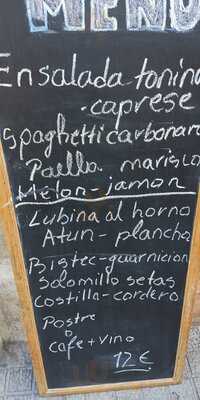 MENU
Ensalada tonino
-caprese
Spaghetti carbonara
Paella marisco
Melon-jamon
Lubina al horno
Atun-plancha
Bistec-guarnicion
Solomillo setas
Costilla-cordero
Postre
o
cafe+vino
12€